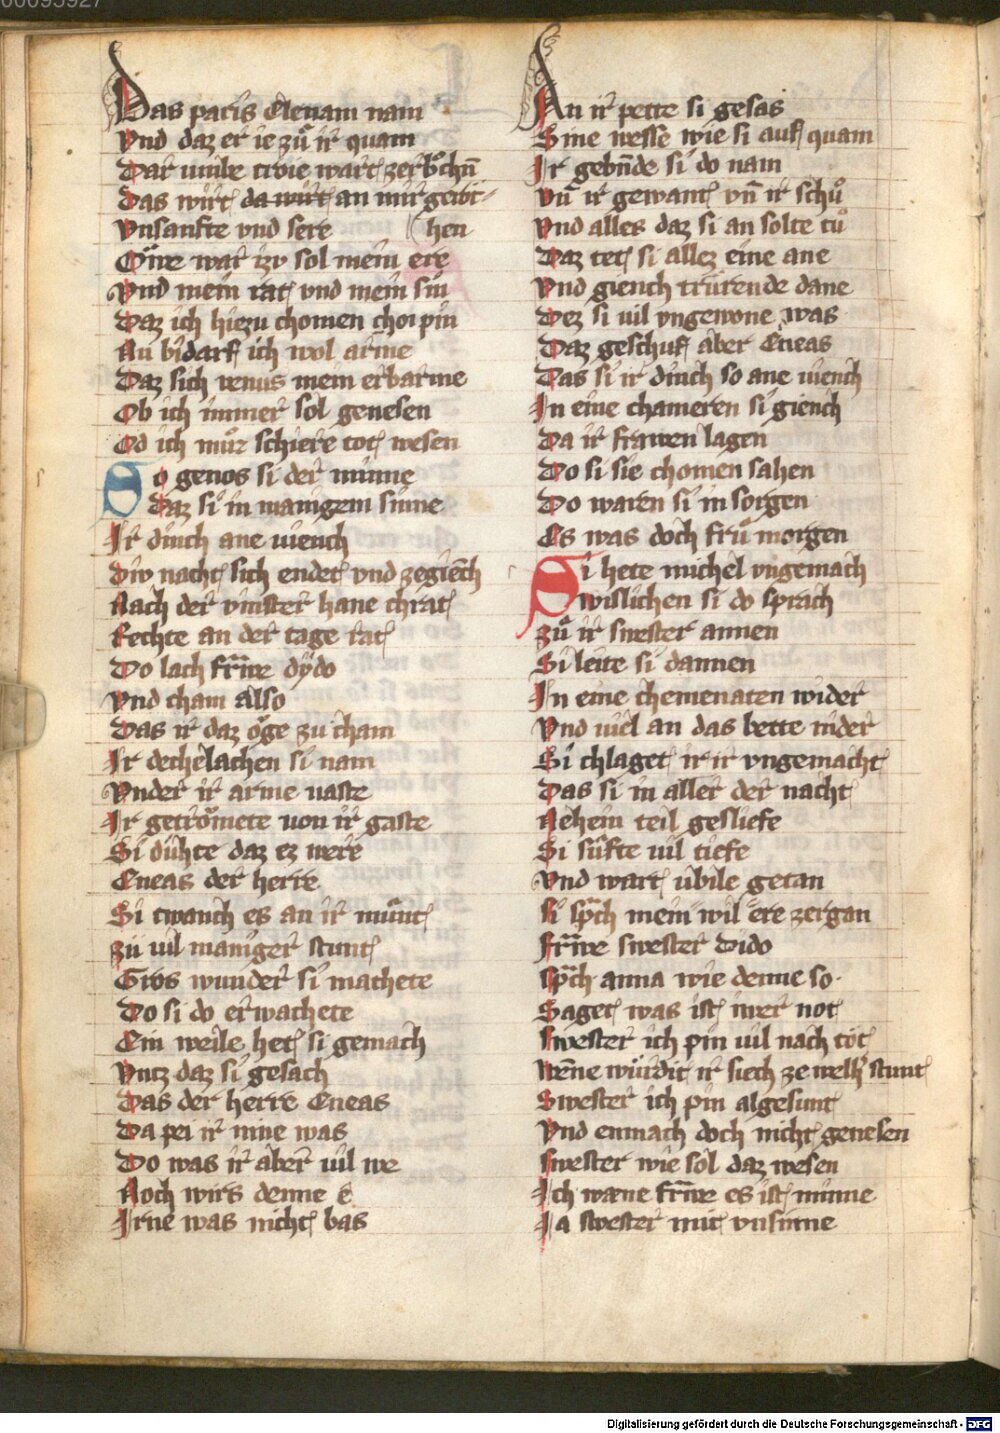 00095927
Das paris Elenam nam
Vnd daz er ie zuͦ ir quam
Dar vmbe troie wart zerbͦchn̄
Das wirt da wirt an mir gebr-
Vnsanfte vnd sere (hen
Oͮwe war zv sol mein ere
Vnd mein rat vnd mein sin
Daz ich hiezu chomen chom pin
Nu bidarf ich wol arme
Daz sich venus mein erbarme
Ob ich immer sol genesen
Od ich muͦz schiere tot wesen
So genos si der minne
Daz si in manigem sinne
Ir dinch ane viench
Div nacht sich endet vnd zegiench
Nach der vinster hane chrat
Rechte an der tage rat
Do lach frawe dydo
Vnd cham also
Das ir daz oͮge zu cham
Ir dechelachen si nam
Vnder ir arme vaste
Ir getroͮmete von ir gaste
Si duhte daz ez were
Eneas der herre
Si twanch es an ir munt
Zu vil maniger stunt
Gros wunder si machete
Do si do erwachete
Ein weile het si gemach
Vntz daz si gesach
Das der herre Eneas
Da pei ir nine was
Do was ir aber vil we
Noch wirs denne e
Irne was nicht bas
An ir pette si gesas
Sine wesse wie si auf quam
Ir gebn̄de si do nam
Vn̄ ir gewant vn̄ ir schuͦ
Vnd alles daz si an solte tuͦ
Daz tet si allez eine ane
Vnd giench trurende dane
Dez si vil vngewone was
Daz geschuf aber Eneas
Das si ir dinch so ane viench
In eine chameren si giench
Da ir frawen lagen
Do si sie chomen sahen
Do waren si in sorgen
Es was doch fruͦ morgen
Si hete michel vngemach
Swislichen si do sprach
Zuͦ ir swester annen
Si leite si dannen
In eine chemenaten wider
Vnd viel an das bette nider
Si chlaget ir ir vngemacht
Das si in aller der nacht
Nehein teil gesliefe
Si sufte vil tiefe
Vnd wart ubile getan
Si sp̄ch mein wil ere zergan
Frawe swester dido
Sp̄ch anna wie denne so
Saget was ist iwer not
Swester ich pin vil nach tot
Wēne wurdit ir siech ze welh' stunt
Swester ich pin algesunt
Vnd enmach doch nicht genesen
Swester wie sol daz wesen
Ich wæne frawe es ist minne
Ja swester mit vnsinne
Digitalisierung gefördert durch die Deutsche Forschungsgemeinschaft - DFG